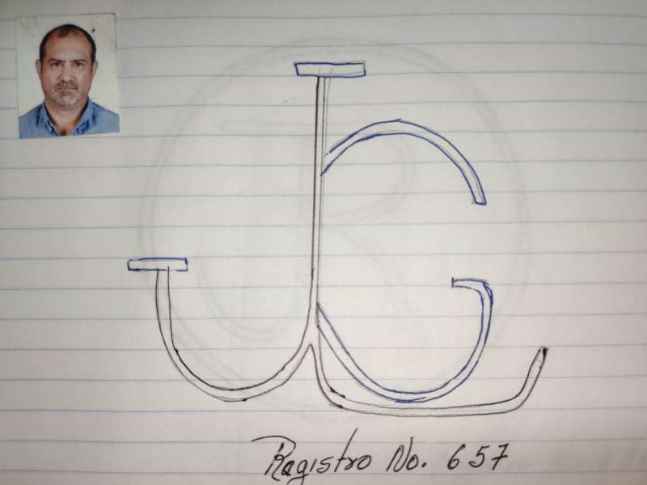 Registro No. 657